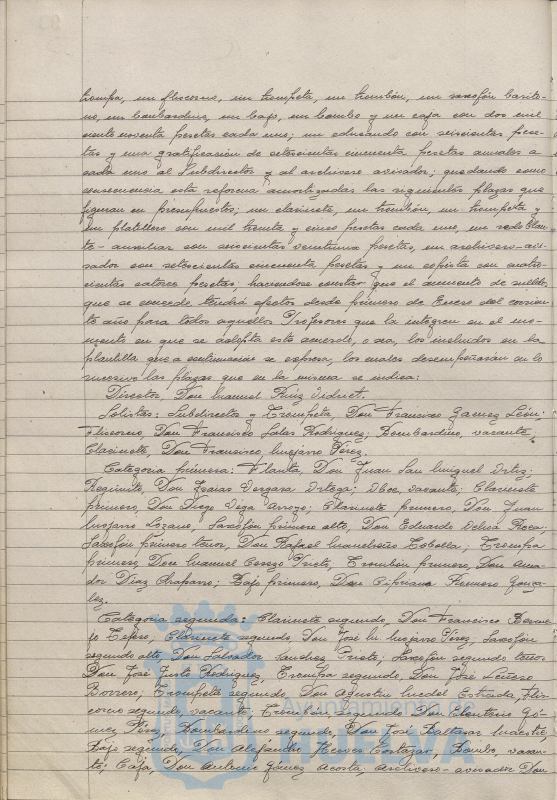 trompa, un fliscorno, un trompeta, un trombón, un saxofón baríto-
no, un bombardino, un bajo, un bombo y un caja con dos mil
noventa pesetas cada uno; un educando con seiscientas pese-
tas y una gratificación de setecientas cincuenta pesetas anuales a
cada uno al Subdirector y al archivero avisador; quedando como
consecuencia esta reforma amortizadas las siguientes plazas que
figuran en presupuestos; un clarinete, un trombón, un trompeta y
un platillero con mil treinta y cinco pesetas cada uno, un
auxiliar con seiscientas pesetas, un archivero-avi-
sador con setecientas cincuenta pesetas y un copista con cuatro-
cientas catorce pesetas; haciendose constar que el aumento de sueldos
que se concede tendrá efectos desde primero de Enero del corrien-
te año para todos aquellos Profesores que la integren en el mo-
mento en que se adopta este acuerdo, o sea, los incluidos en la
plantilla que a continuación se expresa, los cuales desempeñarán en lo
sucesivo las plazas que en la misma se indica:
Director, Don Manuel Ruiz Vidriet.
Solistas: Subdirector y Trompeta, Don Francisco Gamez León;
Fliscorno, Don Francisco Sales Rodriguez; Bombardino, vacante;
Clarinete, Don Francisco Mojarro Pérez.
Categoría primera: Flauta, Don Juan San Miguel Ortiz;
Requinto, Don Isaias Vergara Ortega; Oboe, vacante; Clarinete
primero, Don Diego Vega Arroyo; Clarinete primero, Don Juan
Mojarro Lozano, Saxofón primero alto, Don Eduardo
Saxofón primero tenor, Don Rafael Tobella, Trompa
primero, Don Manuel Cerezo Prieto, Trombón primero, Don Ama-
dor Diaz Chaparro; Bajo primero, Don Cipriano Romero Gonza-
lez.
Categoría segunda: Clarinete segundo, Don Francisco Berme-
jo Tejero, Clarinete segundo, Don José M. Mojarro Pérez, Saxofón
segundo alto, Don Salvador Sanchez Prieto, Saxofón segundo tenor
Don José Justo Rodriguez, Trompa segundo, Don José
Borrero; Trompeta segundo, Don Agustin Estrada, Flis-
corno segundo, vacante; Trombón segundo Don Eleuterio Gó-
mez Pérez, Bombardino segundo, Don José Baltasar Maestre,
Bajo segundo, Don Alejandro Herves Cortazar, Bombo, vacan-
te; Caja, Don Antonio Gómez Acosta, Archivero-avisador Don
Ayuntamiento de
HUELVA